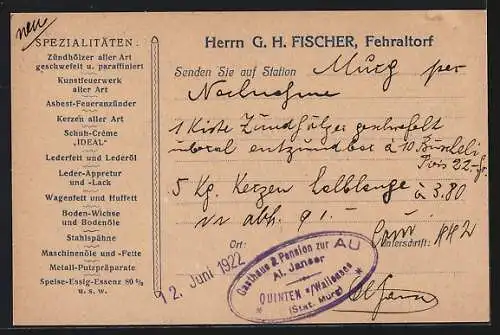 neu
SPEZIALITÄTEN:
Zündhölzer aller Art
geschwefelt u. paraffiniert
Kunstfeuerwerk
aller Art
Asbest-Feueranzünder
Kerzen aller Art
Schuh-Crème
„IDEAL"
Lederfett und Lederöl
Leder-Appretur
und -Lack
Wagenfett und Huffett
Boden-Wichse
und Bodenöle
Stahlspähne
Maschinenöle und -Fette
Metall-Putzpräparate
Speise-Essig-Essenz 80%
u. s. w.
Herrn G. H. FISCHER, Fehraltorf
Senden Sie auf Station Murg per
Nachnahme
1 Kiste Zündhölzer geschwefelt
überal entzündbar à 10 Büscheli
Preis 22.- fr.
5 Kg. Kerzen halblange à 3.80
Ort:
Unterschrift:
12. Juni 1922
Gasthaus & Pension zur AU
Al. Janser
QUINTEN a/Wallensee
(Stat. Murg)